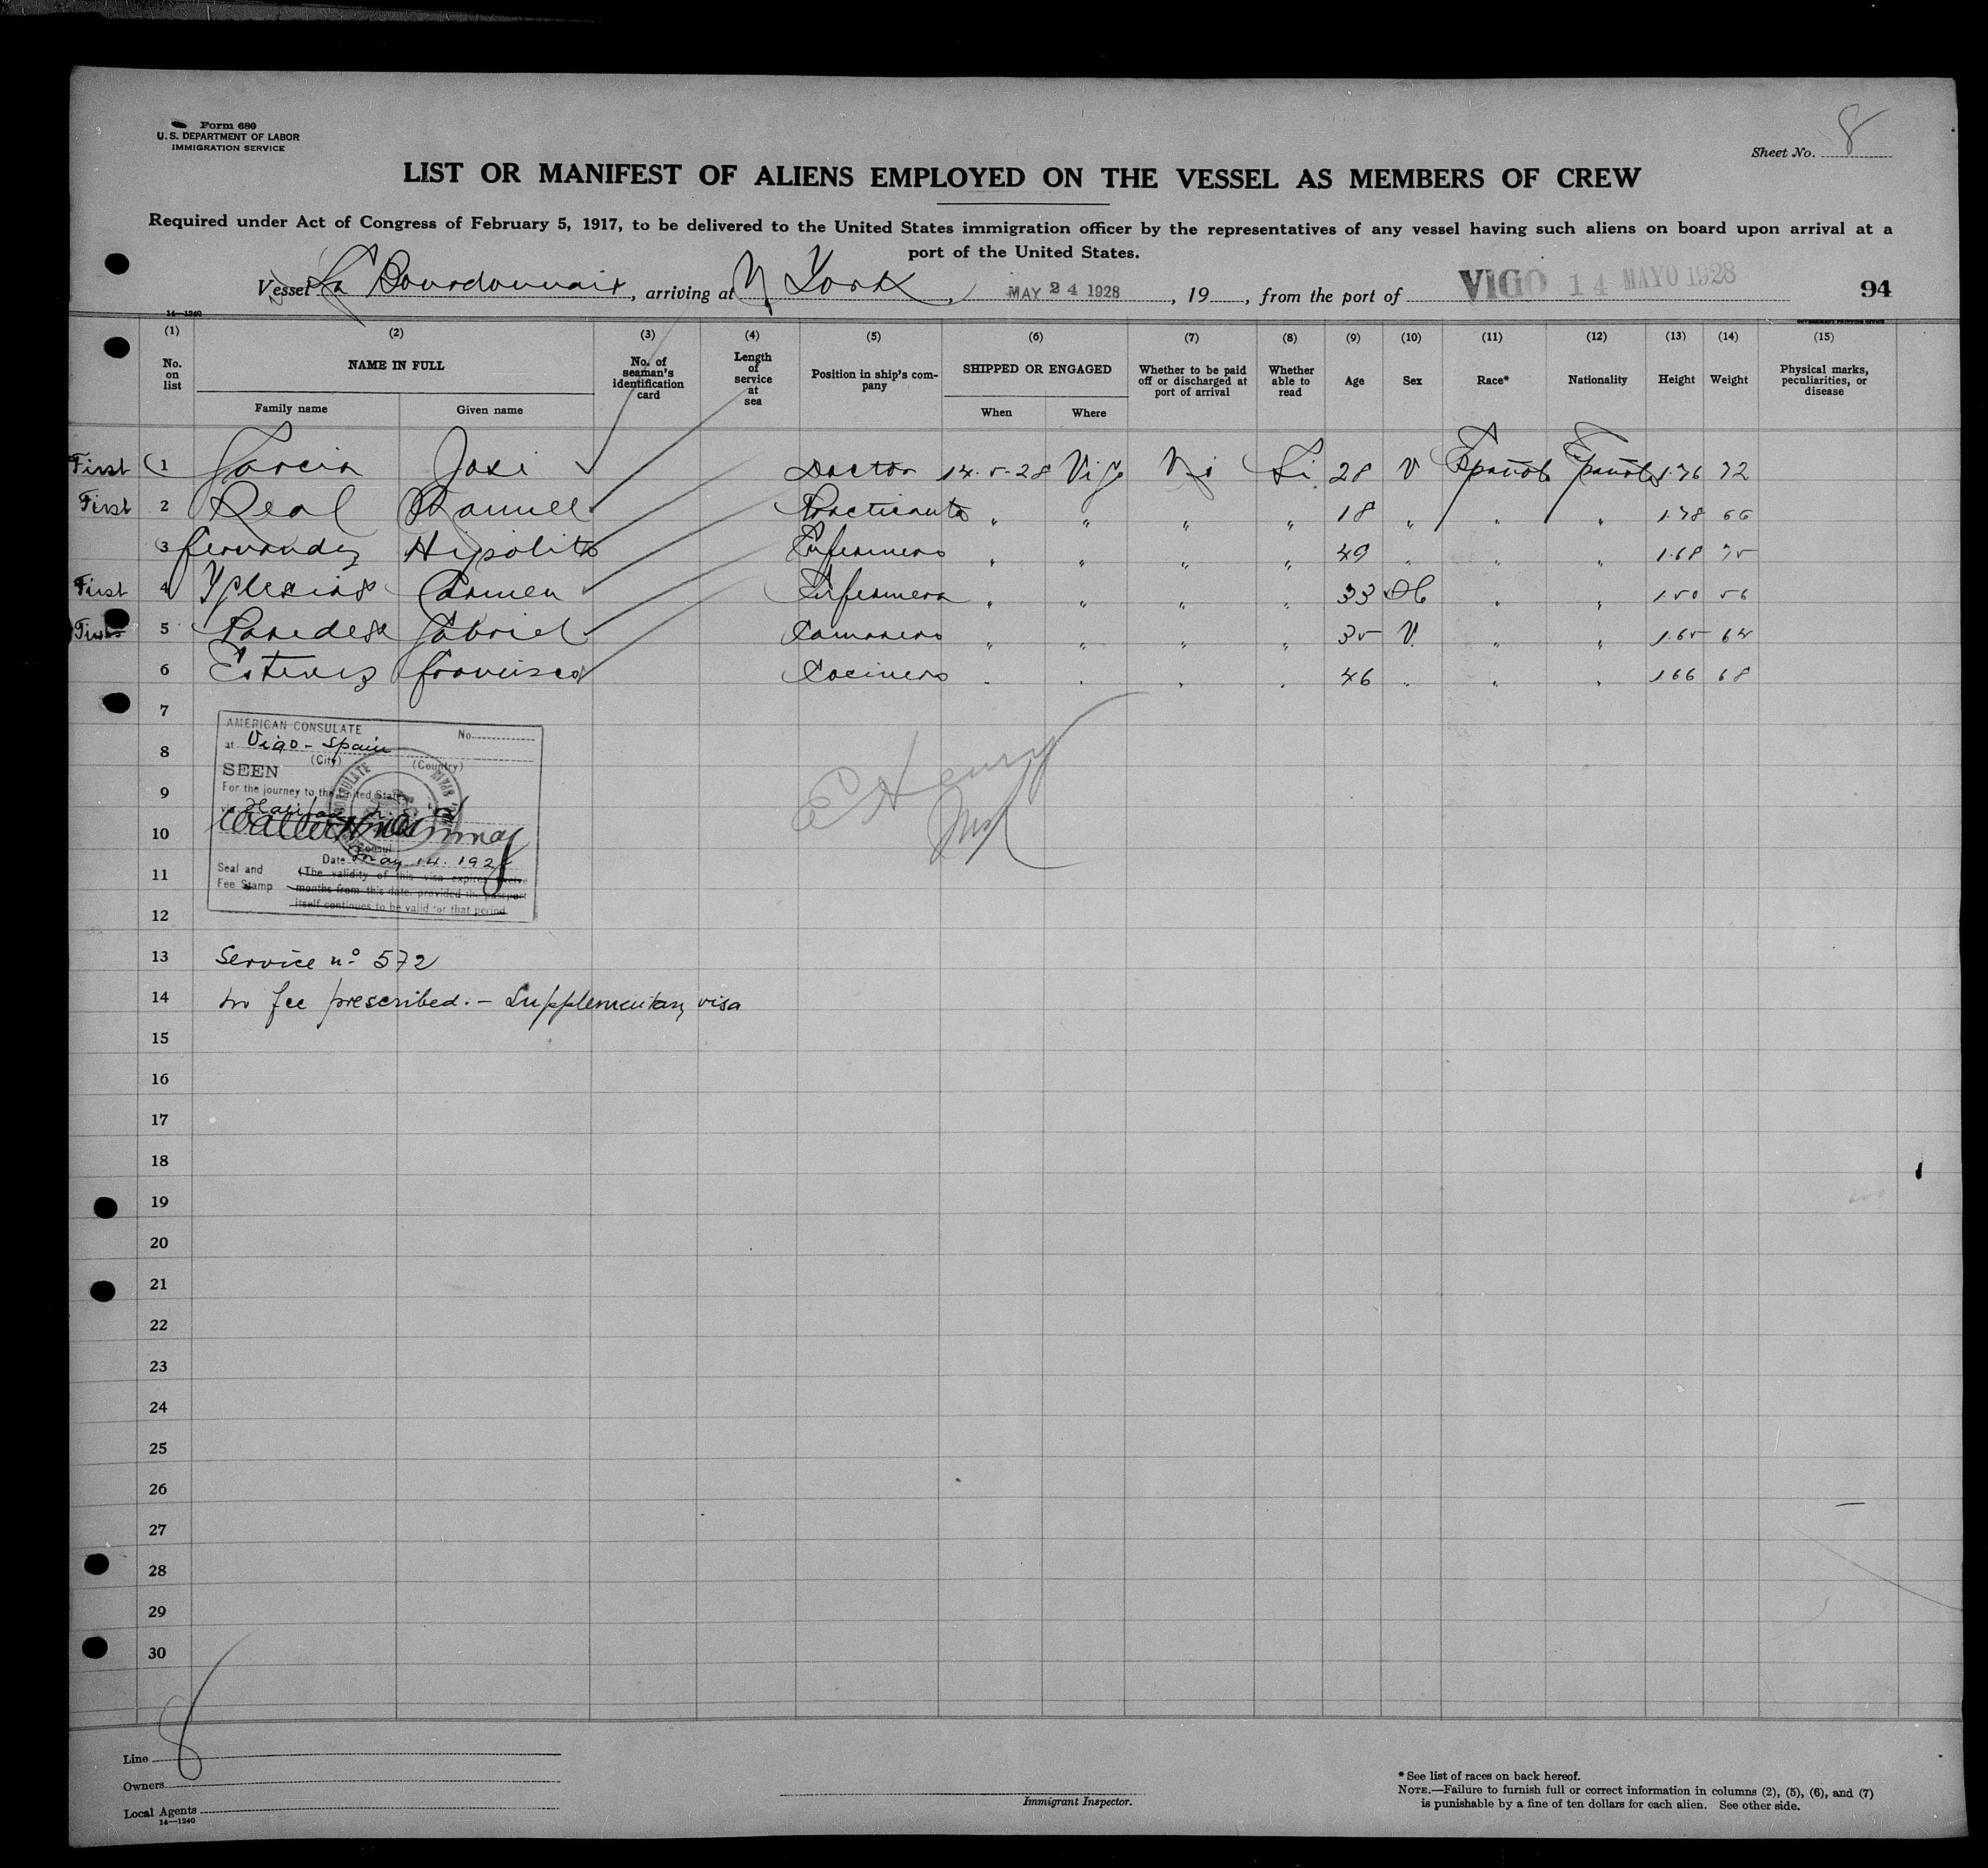 Form 680
U. S. DEPARTMENT OF LABOR
IMMIGRATION SERVICE
8
Sheet No.
LIST OR MANIFEST OF ALIENS EMPLOYED ON THE VESSEL AS MEMBERS OF CREW
Required under Act of Congress of February 5, 1917, to be delivered to the United States immigration officer by the representatives of any vessel having such aliens on board upon arrival at a
port of the United States.
Vessel La Bourdonnais, arriving at N York, MAY 24 1928, 19, from the port of VIGO 14 MAYO 1928 94
14—1240 GOVERNMENT PRINTING OFFICE
(1) No. on list
(2) NAME IN FULL Family name Given name
(3) No. of seaman's identification card
(4) Length of service at sea
(5) Position in ship's company
(6) SHIPPED OR ENGAGED When Where
(7) Whether to be paid off or discharged at port of arrival
(8) Whether able to read
(9) Age
(10) Sex
(11) Race*
(12) Nationality
(13) Height
(14) Weight
(15) Physical marks, peculiarities, or disease
First 1 Garcia Jose Doctor 14-5-28 Vigo No Si 28 V Español Español 1.76 72
First 2 Real Manuel Practicante " " " " 18 " " " 1.78 66
3 Fernandez Hipolito Enfermero " " " " 49 " " " 1.68 75
First 4 Yglesias Carmen Enfermera " " " " 33 " " 1.50 56
First 5 Paredes Gabriel Camarero " " " " 35 V. " " 1.65 64
6 Estevez Francisco Cocinero " " " " 46 " " " 1.66 68
7
AMERICAN CONSULATE No.
8 at Vigo - Spain
(City) (Country)
SEEN
For the journey to the United States
9 via Halifax
10
Consul
Date May 14. 1928
11 Seal and (The validity of this visa expires twelve
Fee Stamp months from this date, provided the passport
itself continues to be valid for that period
12
E Henry
13 Service nº 572
14 no fee prescribed. - Supplementary visa
15
16
17
18
19
20
21
22
23
24
25
26
27
28
29
30
8
Line
Owners
Local Agents
14—1240
Immigrant Inspector.
* See list of races on back hereof.
NOTE.—Failure to furnish full or correct information in columns (2), (5), (6), and (7)
is punishable by a fine of ten dollars for each alien. See other side.